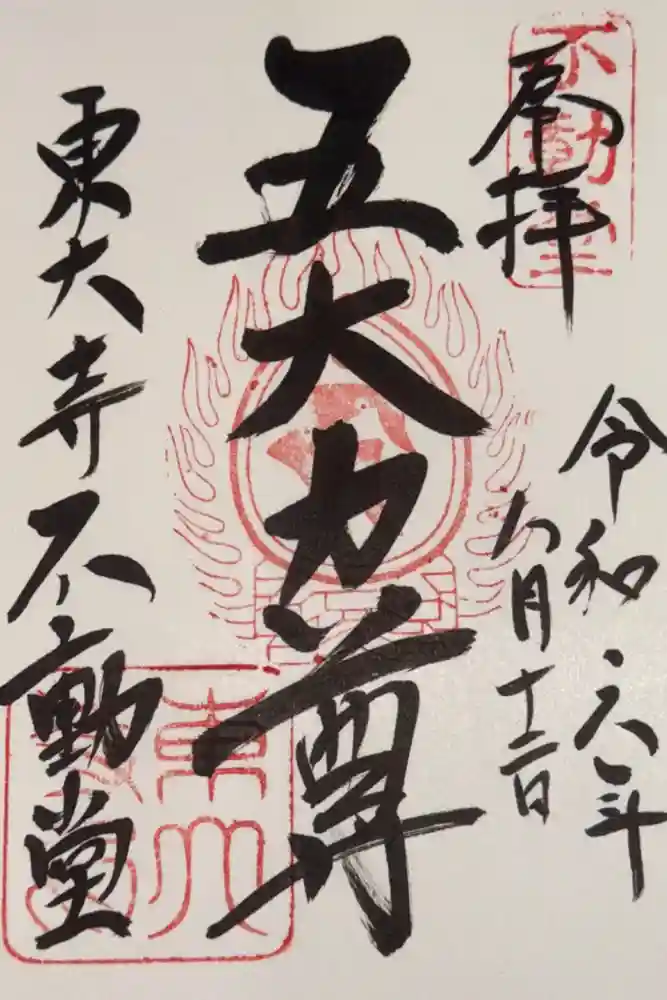 不動堂
奉拝
令和六年
八月十二日
五大力尊
東大寺不動堂
東大